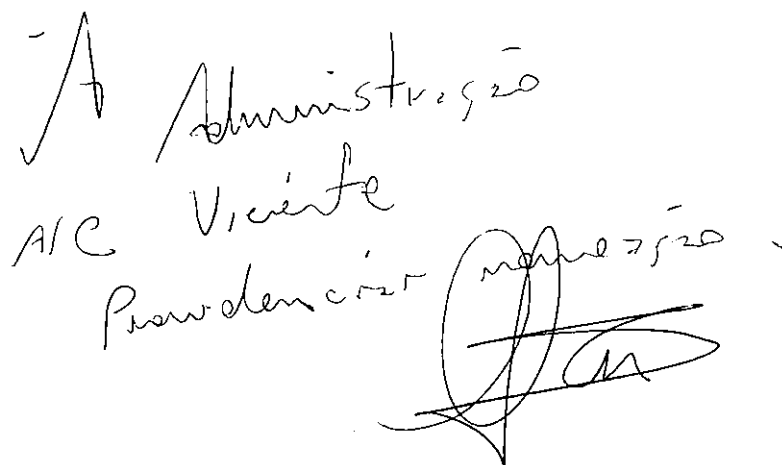 À Administração
A/C Vicente
Providenciar nomeação.